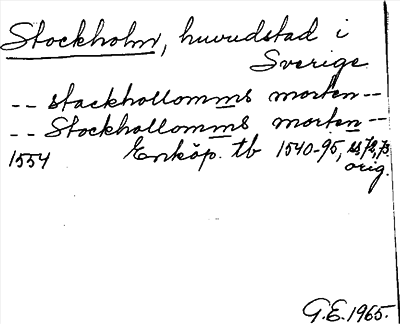 Stockholm, huvudstad i
Sverige
-- stackhollomms morten --
-- Stockhollomms morten --
1554 Enköp. tb 1540-95, ss 72, 73
orig.
G.E. 1965.